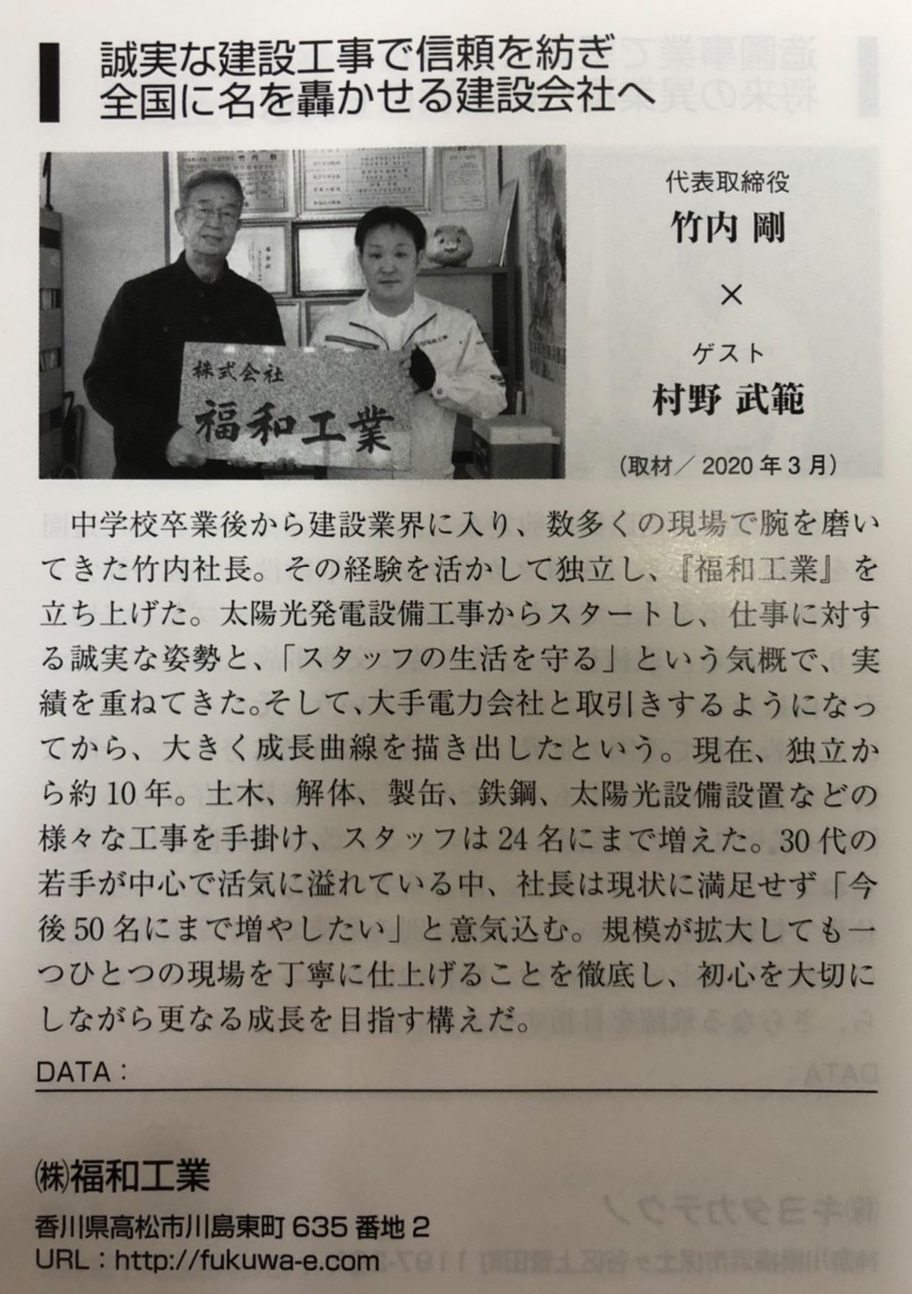 誠実な建設工事で信頼を紡ぎ
全国に名を轟かせる建設会社へ
株式会社
福和工業
代表取締役
竹内 剛
×
ゲスト
村野 武範
(取材／2020年3月)
中学校卒業後から建設業界に入り、数多くの現場で腕を磨い
てきた竹内社長。その経験を活かして独立し、『福和工業』を
立ち上げた。太陽光発電設備工事からスタートし、仕事に対す
る誠実な姿勢と、「スタッフの生活を守る」という気概で、実
績を重ねてきた。そして、大手電力会社と取引きするようになっ
てから、大きく成長曲線を描き出したという。現在、独立か
ら約10年。土木、解体、製缶、鉄鋼、太陽光設備設置などの
様々な工事を手掛け、スタッフは24名にまで増えた。30代の
若手が中心で活気に溢れている中、社長は現状に満足せず「今
後50名にまで増やしたい」と意気込む。規模が拡大しても一
つひとつの現場を丁寧に仕上げることを徹底し、初心を大切に
しながら更なる成長を目指す構えだ。
DATA：
㈱福和工業
香川県高松市川島東町635番地2
URL：http://fukuwa-e.com